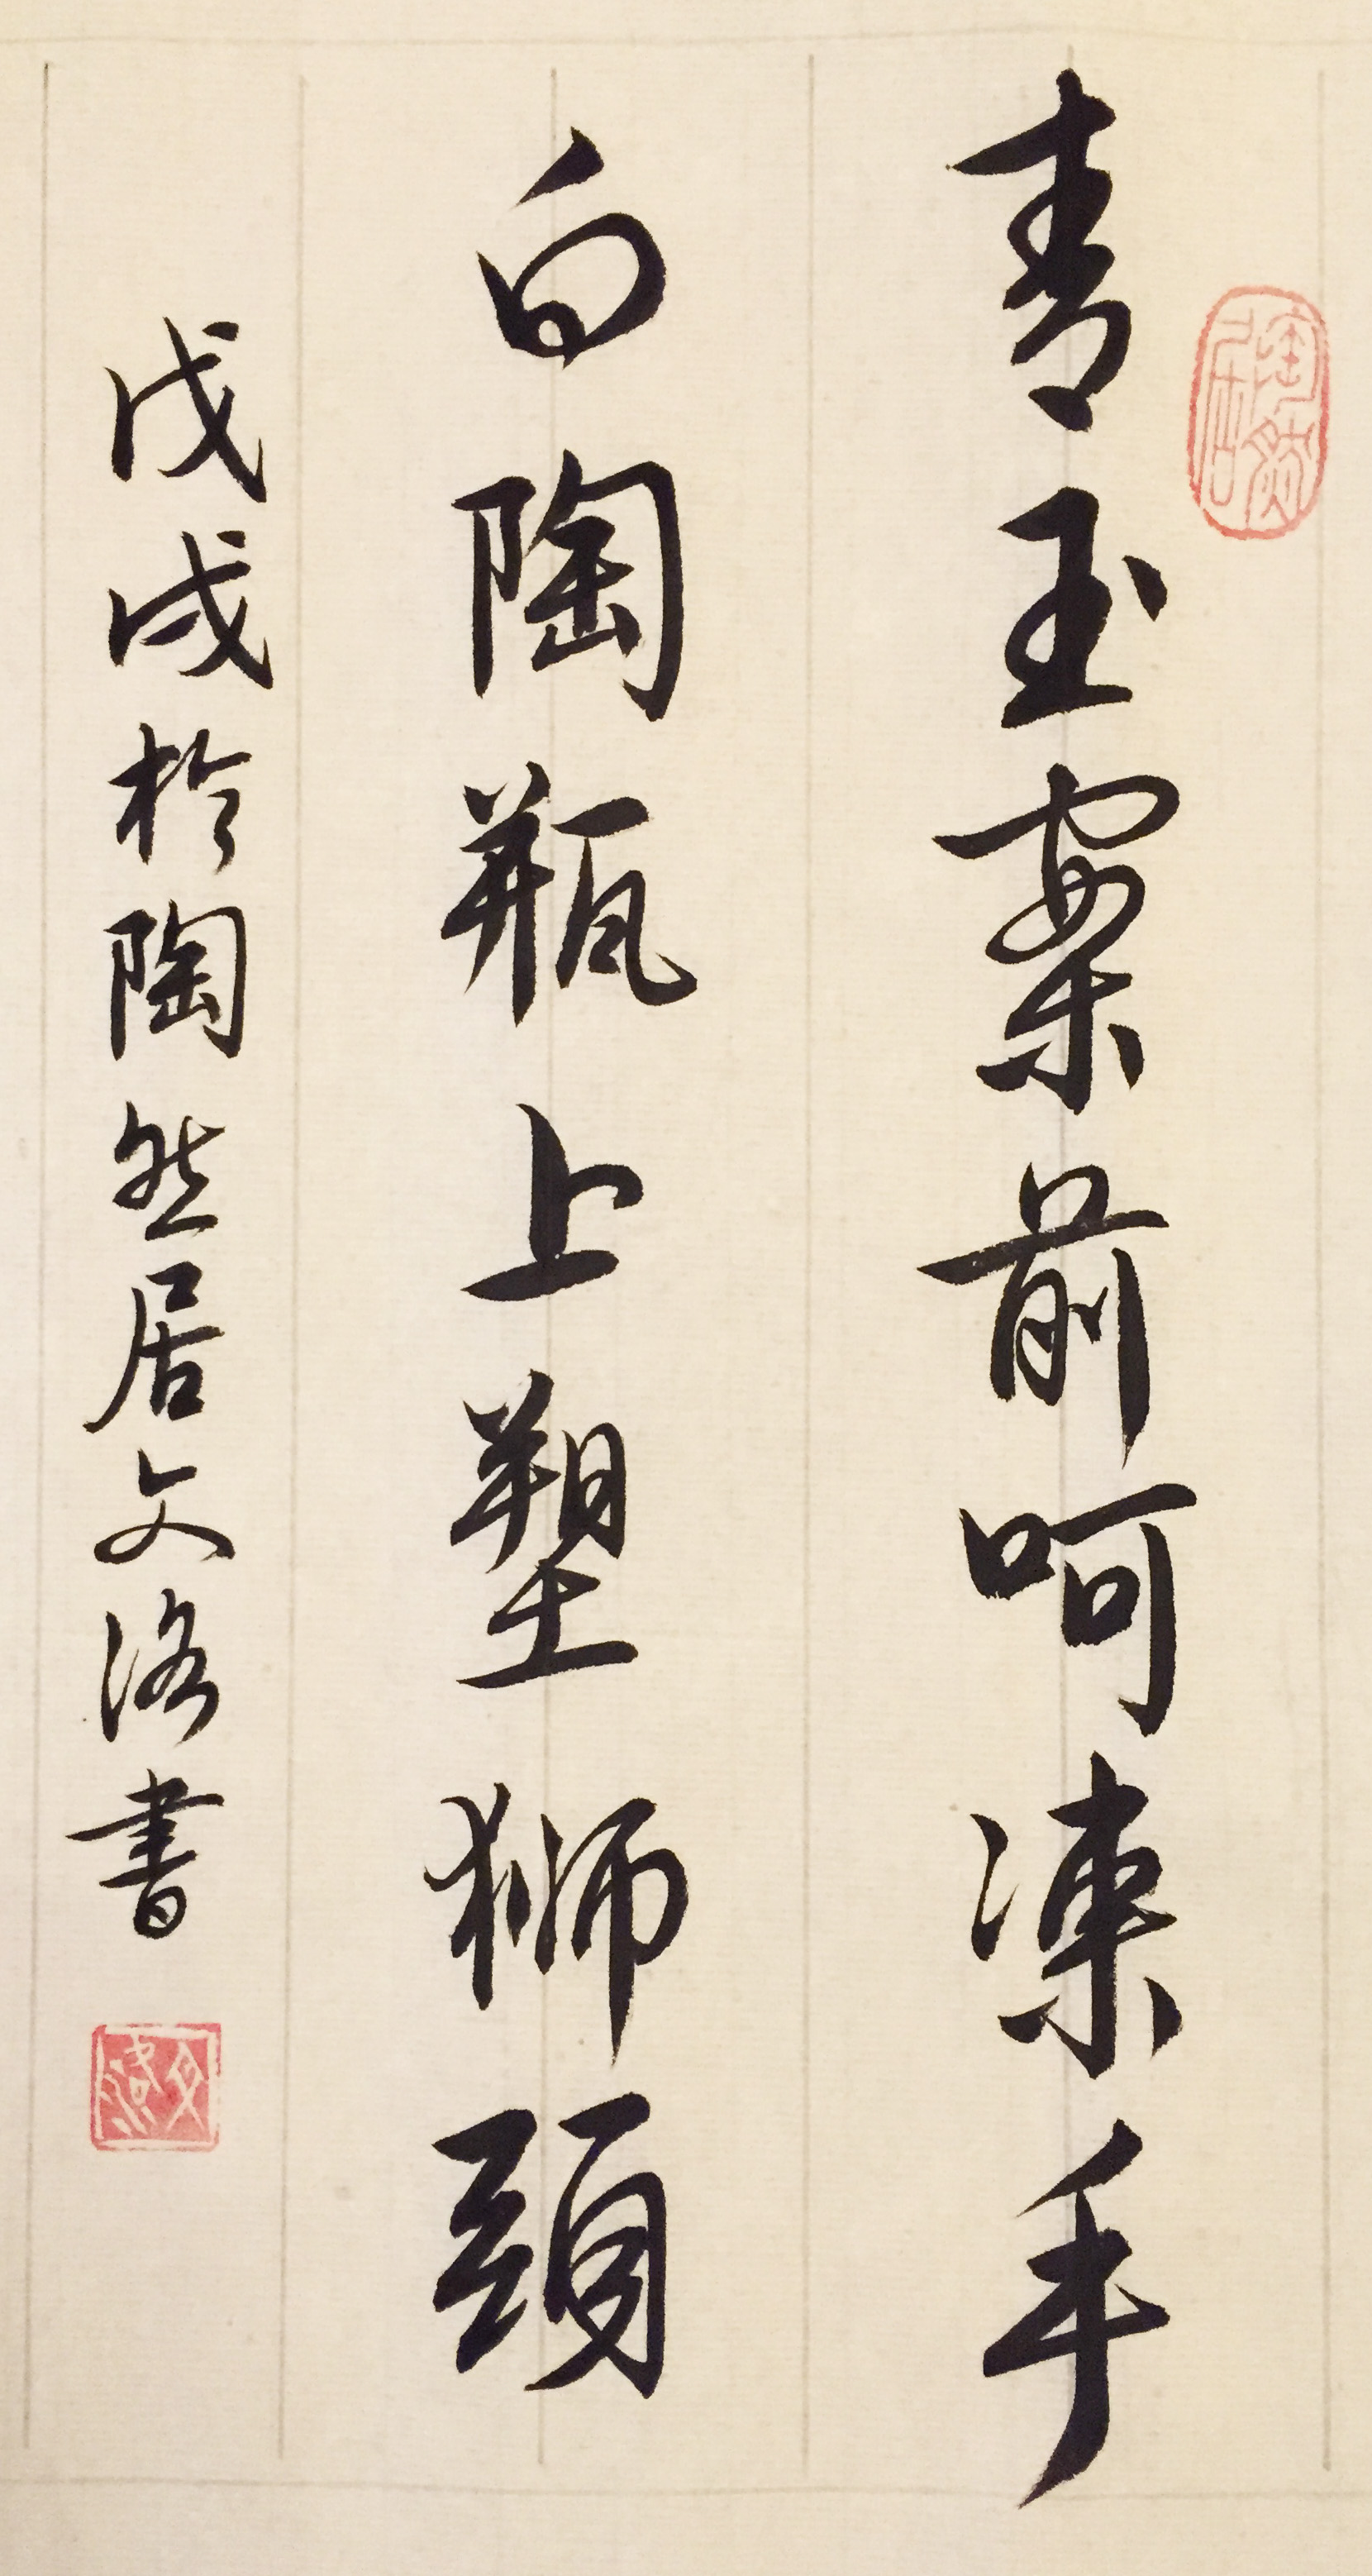 青玉案前呵凍手
白陶瓶上塑獅頭
戊戌於陶然居文洛書
陶然居